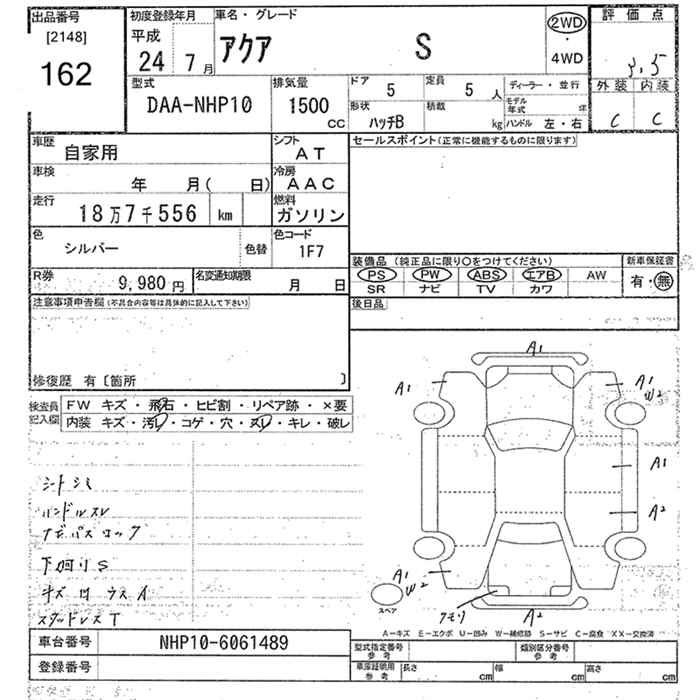 出品番号 初度登録年月 車名・グレード 2WD 評価点
[2148] 平成
162 24 7月 アクア S 4WD 3.5
型式 排気量 ドア 5 定員 5 人 ディーラー・並行 外装 内装
DAA-NHP10 1500 cc 形状 ハッチB 積載 kg モデル年式 年 C C
ハンドル 左・右
車歴 自家用 シフト AT セールスポイント(正常に機能するものに限ります)
車検 年 月( 日) 冷房 AAC
走行 18万7千556 km 燃料 ガソリン
色 シルバー 色替 色コード 1F7
装備品 (純正品に限り○をつけてください) 新車保証書
R券 9,980円 名変通知期限 月 日 PS PW ABS エアB AW 有・無
SR ナビ TV カワ
注意事項申告欄(不具合内容等は具体的に記入して下さい) 後日品
修復歴 有〔箇所 〕
検査員記入欄 FW キズ・飛石・ヒビ割・リペア跡・×要
内装 キズ・汚レ・コゲ・穴・スレ・キレ・破レ
シートシミ
ハンドルスレ
ナビパスロック
下廻りS
スタッドレスT
A1
A1
A1
W2
A1
A2
A1
W2
スペア
A2
A-キズ E-エクボ U-凹み W-補修跡 S-サビ C-腐食 XX-交換済
車台番号 NHP10-6061489 型式指定番号 参考 類別区分番号 参考
登録番号 車庫証明用 参考 長さ cm 幅 cm 高さ cm